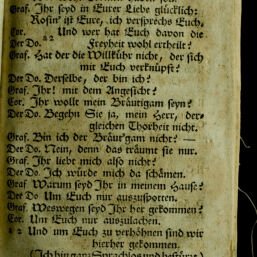 Graf. Ihr seyd in Eurer Liebe glücklich:
Rosin' ist Eure, ich versprechs Euch.
Cor. Und wer hat Euch davon die
Der Do. a 2 Freyheit wohl ertheilt?
Graf. Hat der die Willkühr nicht, der sich
mit Euch verknüpft?
Der Do. Derselbe, der bin ich?
Graf. Ihr! mit dem Angesicht?
Cor. Ihr wollt mein Bräutigam seyn?
Der Do. Begehn Sie ja, mein Herr, der-
gleichen Thorheit nicht.
Graf. Bin ich der Bräut'gam nicht? —
Der Do. Nein, denn das träumt sie nur.
Graf. Ihr liebt mich also nicht?
Der Do. Ich würde mich da schämen.
Graf Warum seyd Ihr in meinem Hause?
Der Do Um Euch nur auszuspotten.
Graf. Weswegen seyd Ihr her gekommen?
Cor. Um Euch nur auszulachen.
a 2 Und um Euch zu verhöhnen sind wir
hierher gekommen.
(Ich bin ganz Sprachlos und bestürzt)